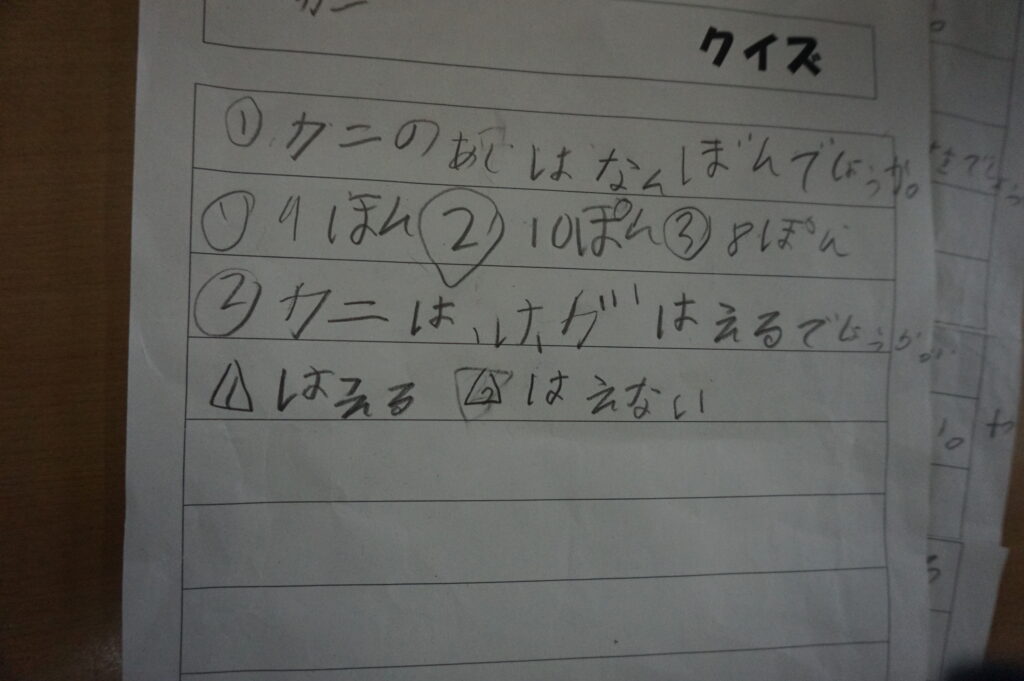 カニ
クイズ
①カニのあしはなんぼんでしょうか。
①9ほん②10ぽん③8ぽん
②カニは、け、がはえるでしょうか。
1はえる 2はえない